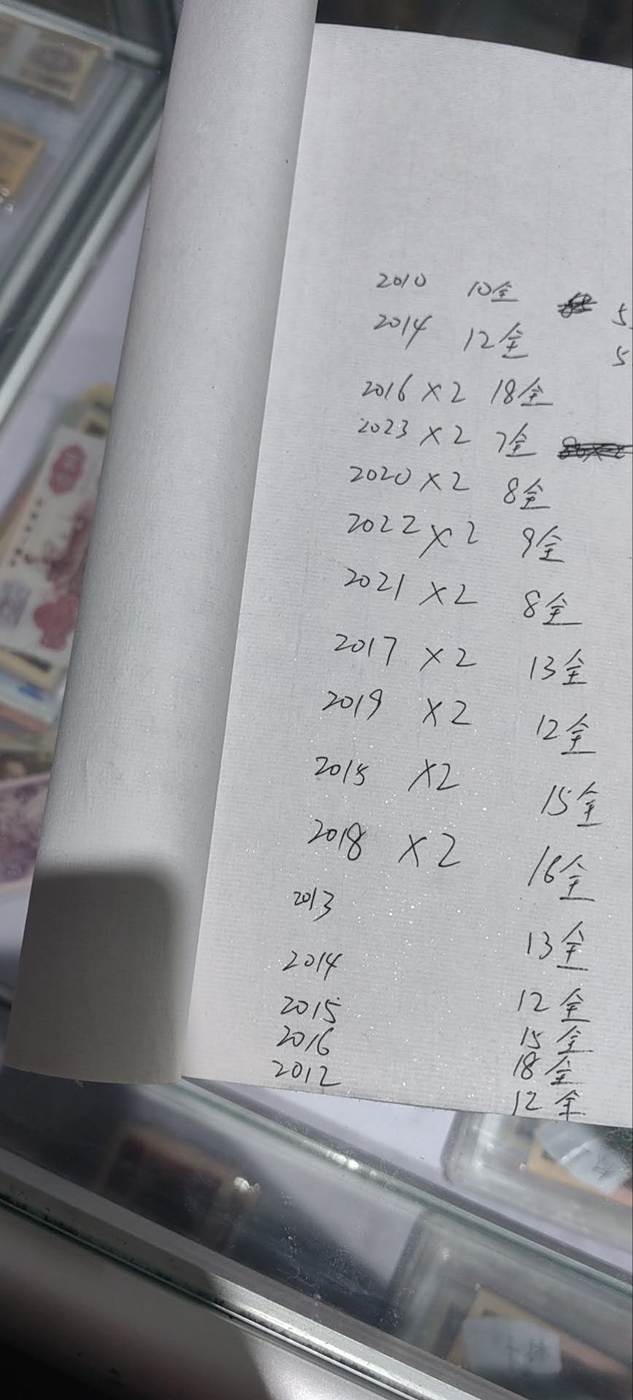 2010 10全 5
2014 12全 5
2016 ×2 18全
2023 ×2 7全
2020 ×2 8全
2022 ×2 9全
2021 ×2 8全
2017 ×2 13全
2019 ×2 12全
2015 ×2 15全
2018 ×2 16全
2013 13全
2014 12全
2015 15全
2016 18全
2012 12全